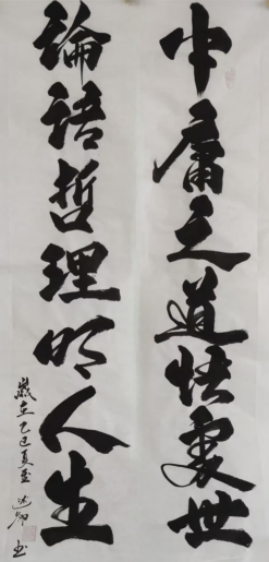 中庸之道悟處世
論語哲理明人生
歲在乙巳夏
書